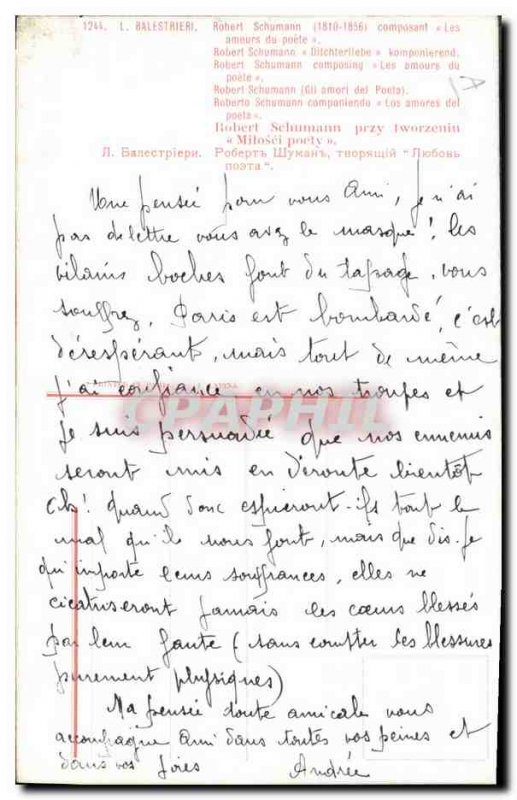 1244. L. BALESTRIERI. Robert Schumann (1810-1856) composant « Les
ameurs du poète ».
Robert Schumann « Ditchterliebe » komponierend.
Robert Schumann composing « Les amours du
poète ».
Robert Schumann (Gli amori del Poeta).
Roberto Schumann componiendo « Los amores del
poeta ».
Robert Schumann przy tworzeniu
« Miłości poety ».
Л. Балестріери. Робертъ Шуманъ, творящій “ Любовь
поэта ”.
Une pensée pour vous Ami, je n'ai
pas de lettre vous avez le masque ! les
vilains boches font du tapage, vous
souffrez, Paris est bombardé, c'est
désespérant, mais tout de même
j'ai confiance en nos troupes et
CPAPHIL
je suis persuadée que nos ennemis
seront mis en déroute bientôt
Oh ! quand donc expieront-ils tout le
mal qu'ils nous font, mais que dis-je
qu'importe leurs souffrances, elles ne
cicatriseront jamais les cœurs blessés
par leur faute (sans compter les blessures
purement physiques)
Ma pensée toute amicale vous
accompagne Ami dans toutes vos peines et
dans vos joies Andrée